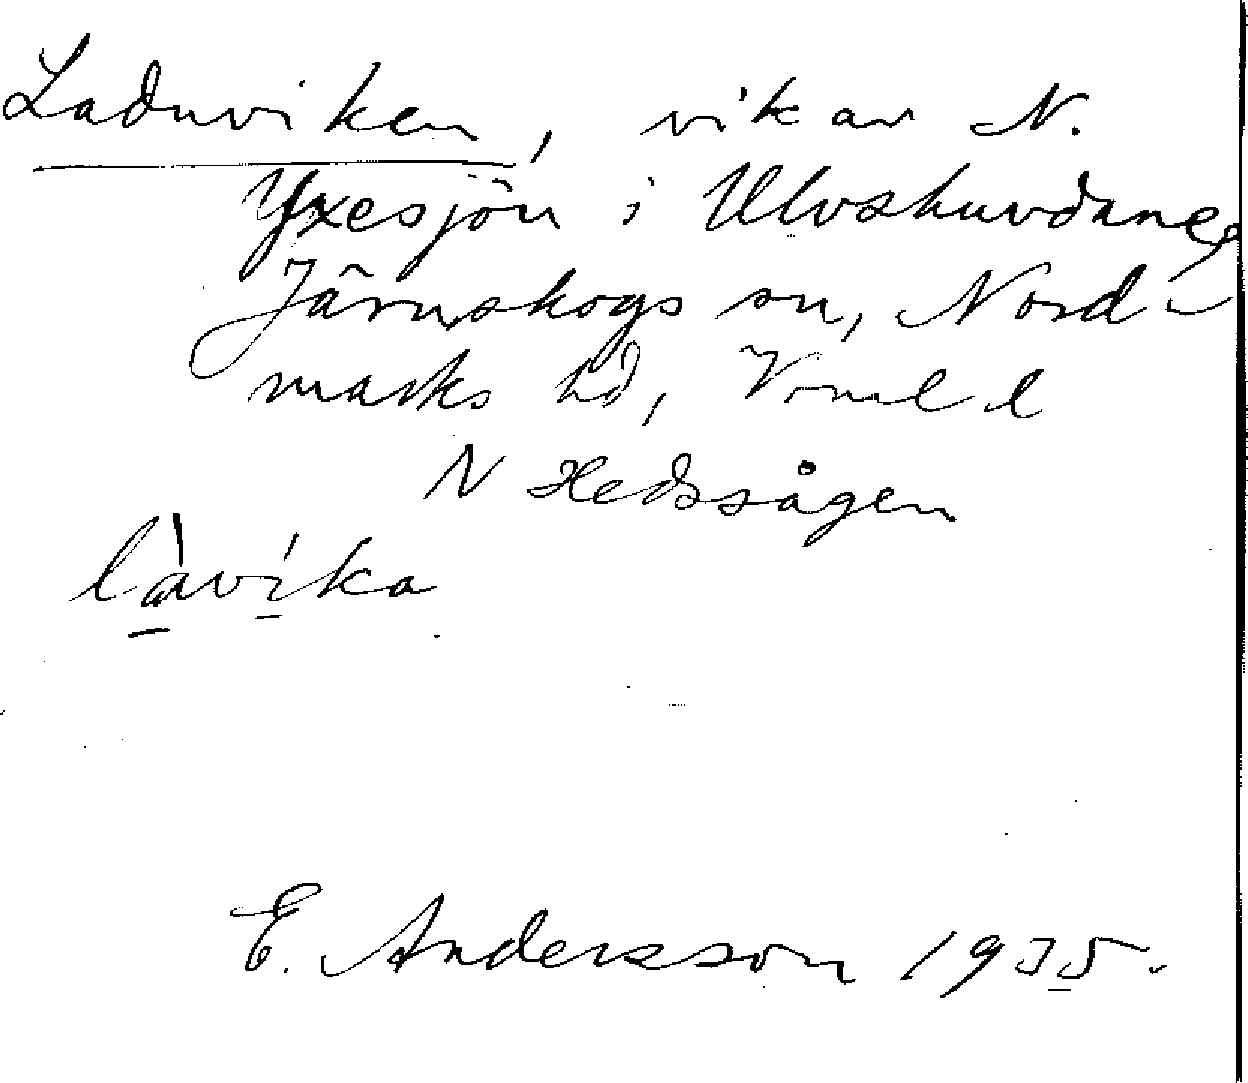 Laduviken, vik av N.
Yxesjön i Ulvskuvdane,
Järnskogs sn, Nord-
marks hd, Vrml l
N Hedssågen
làvíka
E. Andersson 1935.